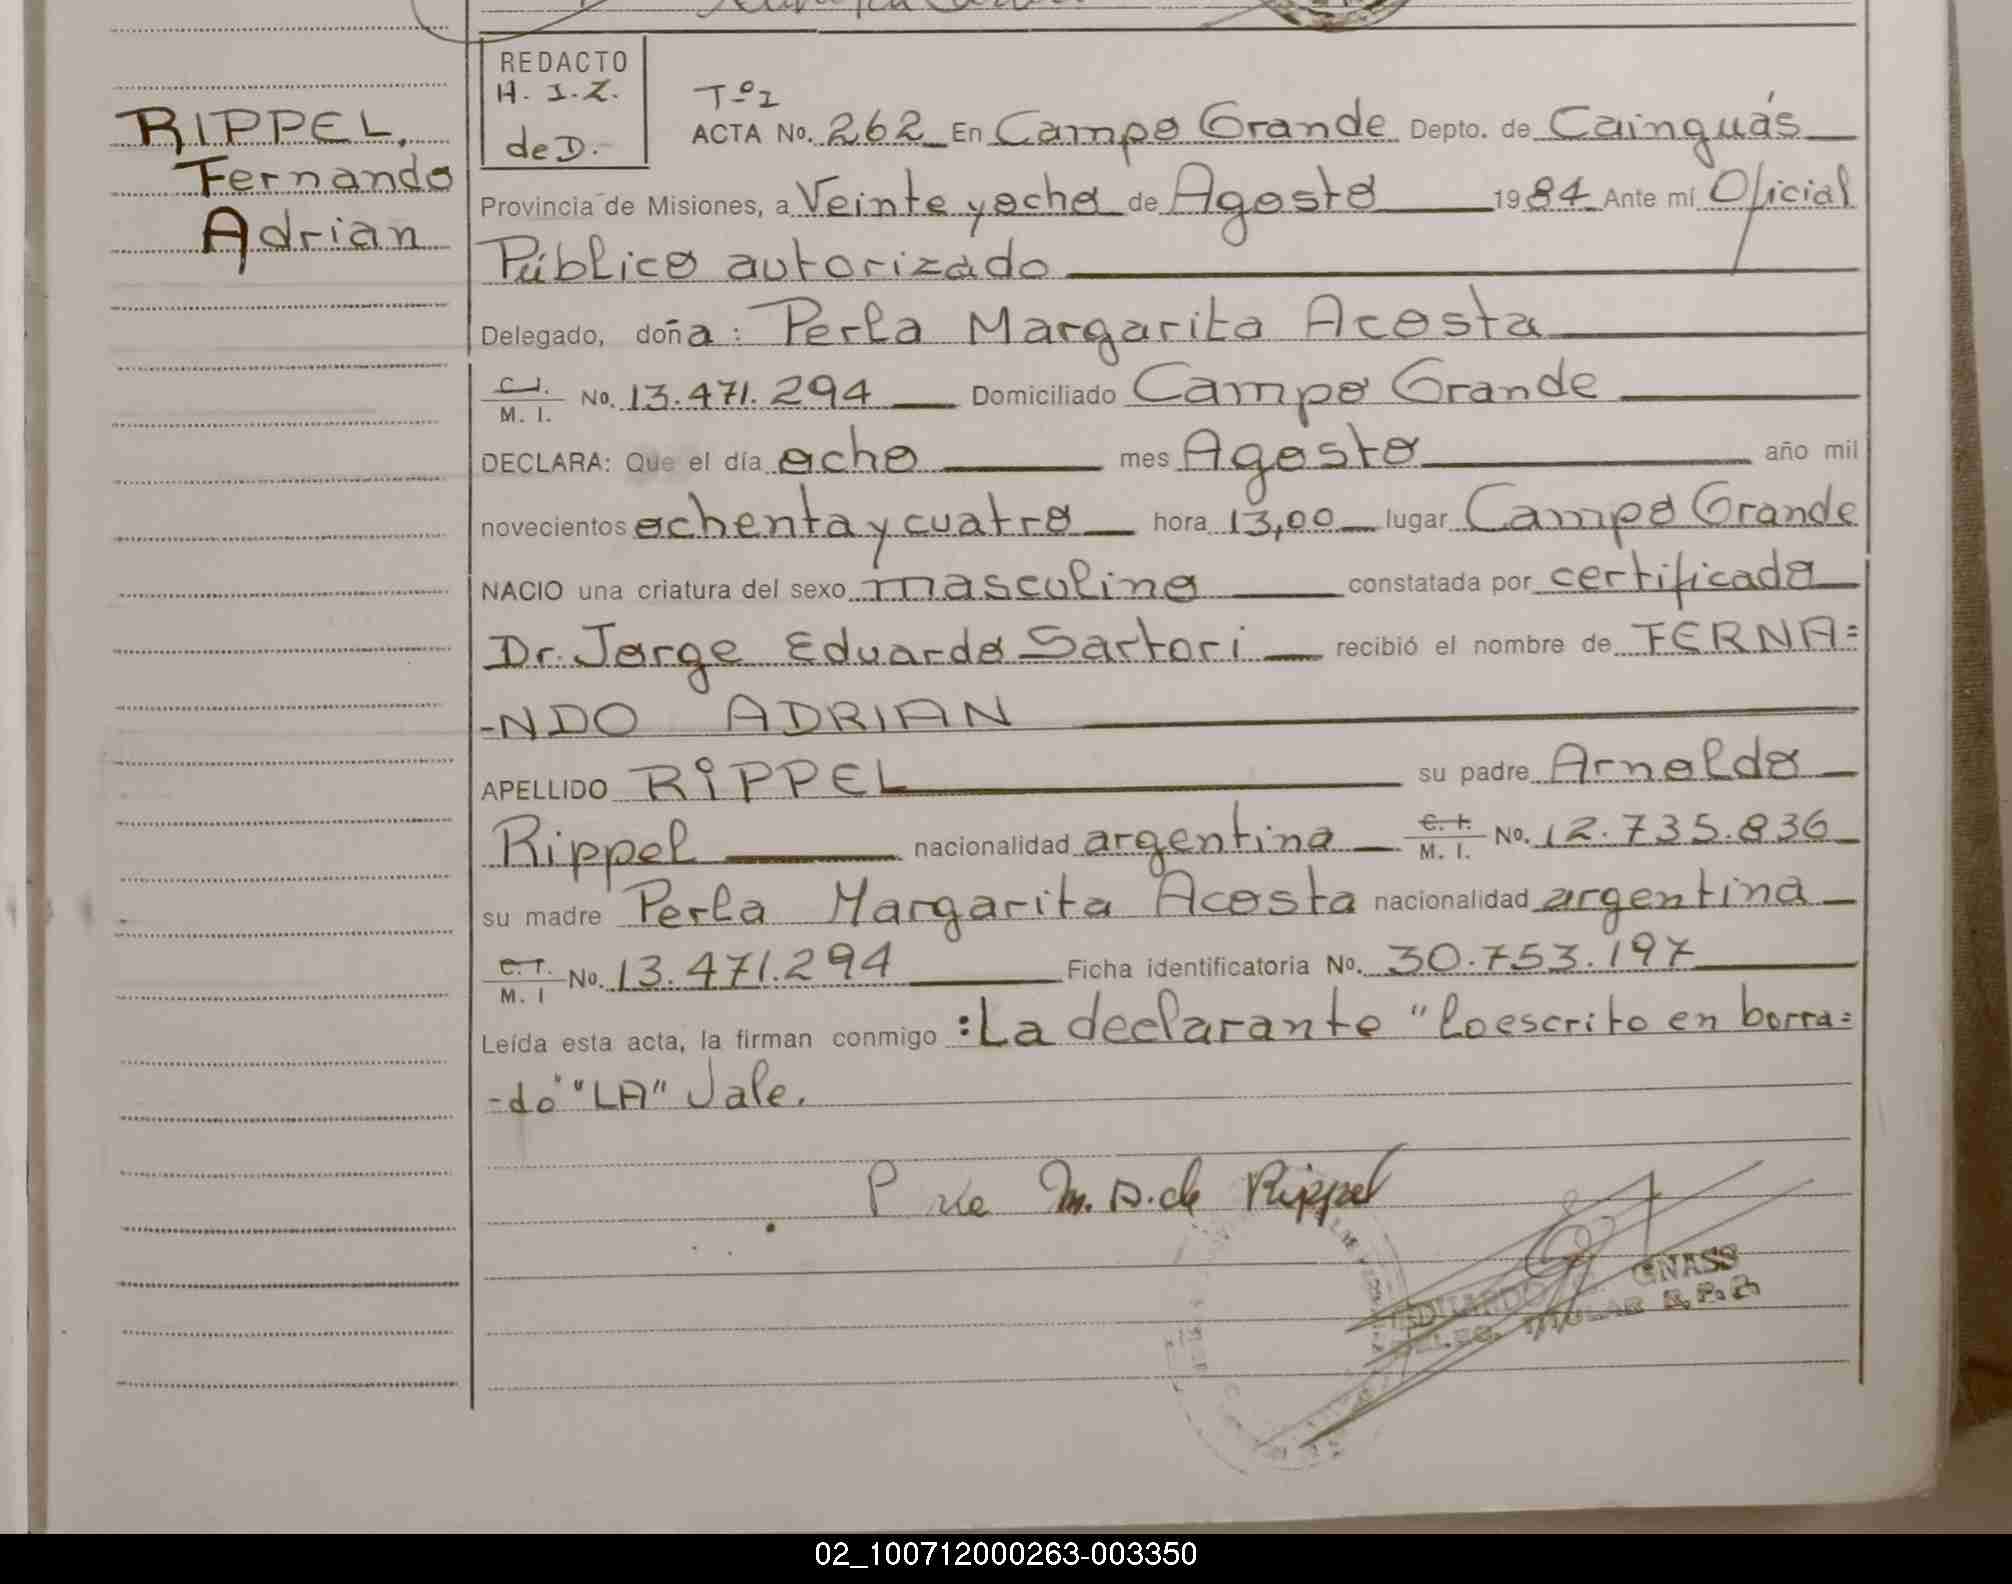 RIPPEL,
Fernando
Adrian
REDACTO
H. I. Z.
de D.
Tº I
ACTA No. 262 En Campo Grande Depto. de Cainguás
Provincia de Misiones, a Veinte y ocho de Agosto 1984 Ante mí Oficial
Público autorizado
Delegado, doña: Perla Margarita Acosta
C.I. / M. I. No. 13.471.294 Domiciliado Campo Grande
DECLARA: Que el día ocho mes Agosto año mil
novecientos ochenta y cuatro hora 13,00 lugar Campo Grande
NACIO una criatura del sexo masculino constatada por certificado
Dr. Jorge Eduardo Sartori recibió el nombre de FERNA=
-NDO ADRIAN
APELLIDO RIPPEL su padre Arnoldo
Rippel nacionalidad argentina C. I. / M. I. No. 12.735.836
su madre Perla Margarita Acosta nacionalidad argentina
C. I. / M. I No. 13.471.294 Ficha identificatoria No. 30.753.197
Leída esta acta, la firman conmigo :La declarante "lo escrito en borra=
-do" "LA" Vale.
M. A. de Rippel
EDUARDO GNASS
DELEG. TITULAR R.P.P.
02_100712000263-003350